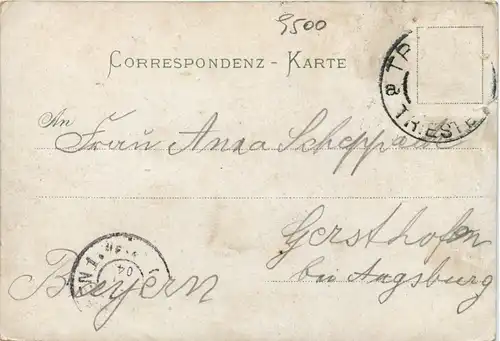 9500
CORRESPONDENZ - KARTE
a TR TRIESTE
An
Frau Anna
Gersthofen
bei Augsburg
Bayern
04